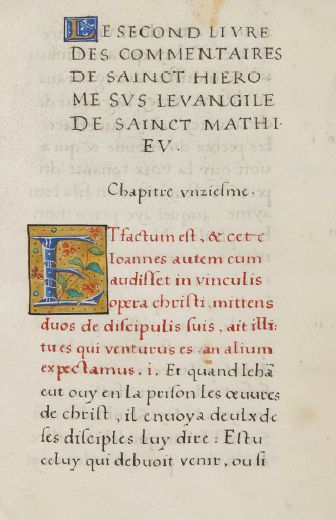 LE SECOND LIVRE
DES COMMENTAIRES
DE SAINCT HIERO-
ME SVS LEVANGILE
DE SAINCT MATHI-
EV.
Chapitre vnziesme.
ET factum est, & cet e
Ioannes autem cum
audisset in vinculis
opera christi, mittens
duos de discipulis suis, ait illi:
tu es qui venturus es an alium
expectamus. i. Et quand Iehã
eut ouy en la prison les œuures
de christ, il enuoya deulx de
ses disciples luy dire: Es tu
celuy qui debuoit venir, ou si